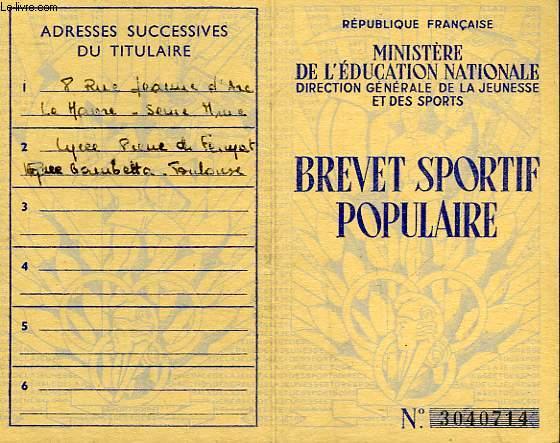 Le-livre.com
ADRESSES SUCCESSIVES
DU TITULAIRE
1 8 Rue Jeanne d'Arc
Le Havre - Seine Mme
2 Lycée Pierre de Fermat
Gambetta - Toulouse
3
4
5
6
RÉPUBLIQUE FRANÇAISE
MINISTÈRE
DE L'ÉDUCATION NATIONALE
DIRECTION GÉNÉRALE DE LA JEUNESSE
ET DES SPORTS
BREVET SPORTIF
POPULAIRE
N° 3040714